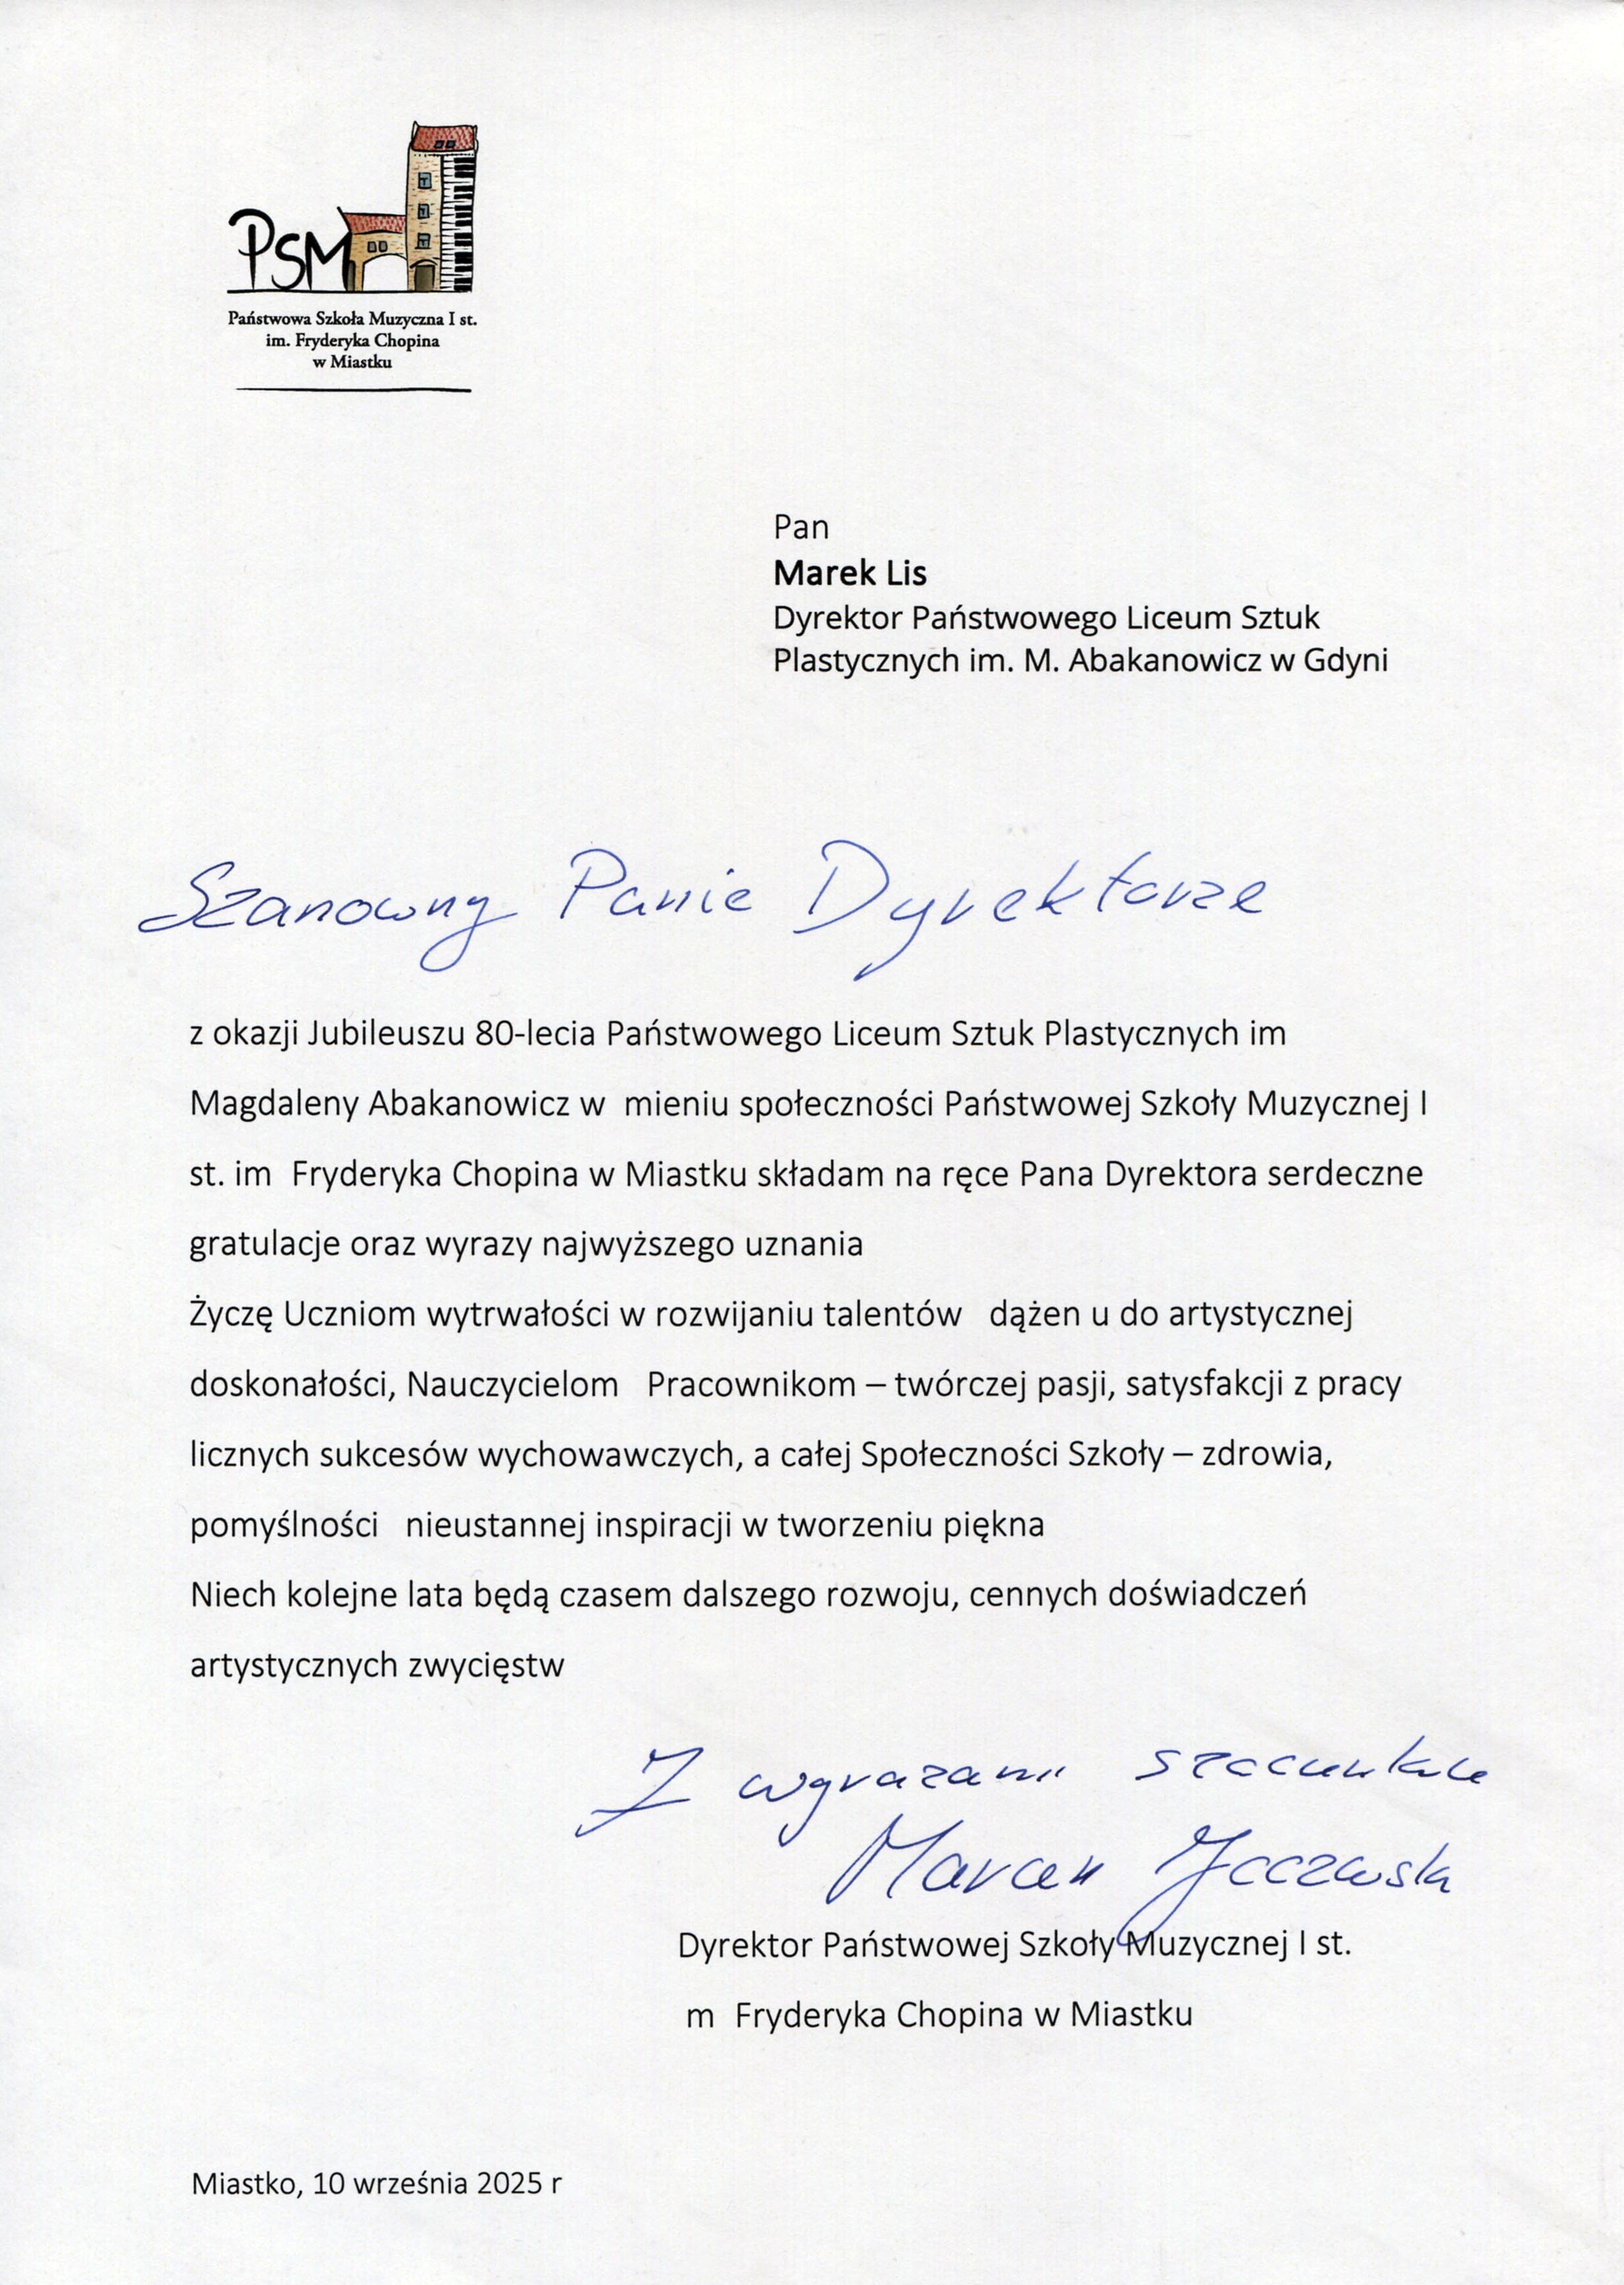 PSM
Państwowa Szkoła Muzyczna I st.
im. Fryderyka Chopina
w Miastku
Pan
Marek Lis
Dyrektor Państwowego Liceum Sztuk
Plastycznych im. M. Abakanowicz w Gdyni
Szanowny Panie Dyrektorze
z okazji Jubileuszu 80-lecia Państwowego Liceum Sztuk Plastycznych im
Magdaleny Abakanowicz w mieniu społeczności Państwowej Szkoły Muzycznej I
st. im Fryderyka Chopina w Miastku składam na ręce Pana Dyrektora serdeczne
gratulacje oraz wyrazy najwyższego uznania
Życzę Uczniom wytrwałości w rozwijaniu talentów dążen u do artystycznej
doskonałości, Nauczycielom Pracownikom – twórczej pasji, satysfakcji z pracy
licznych sukcesów wychowawczych, a całej Społeczności Szkoły – zdrowia,
pomyślności nieustannej inspiracji w tworzeniu piękna
Niech kolejne lata będą czasem dalszego rozwoju, cennych doświadczeń
artystycznych zwycięstw
Z wyrazami szacunku
Dyrektor Państwowej Szkoły Muzycznej I st.
m Fryderyka Chopina w Miastku
Miastko, 10 września 2025 r